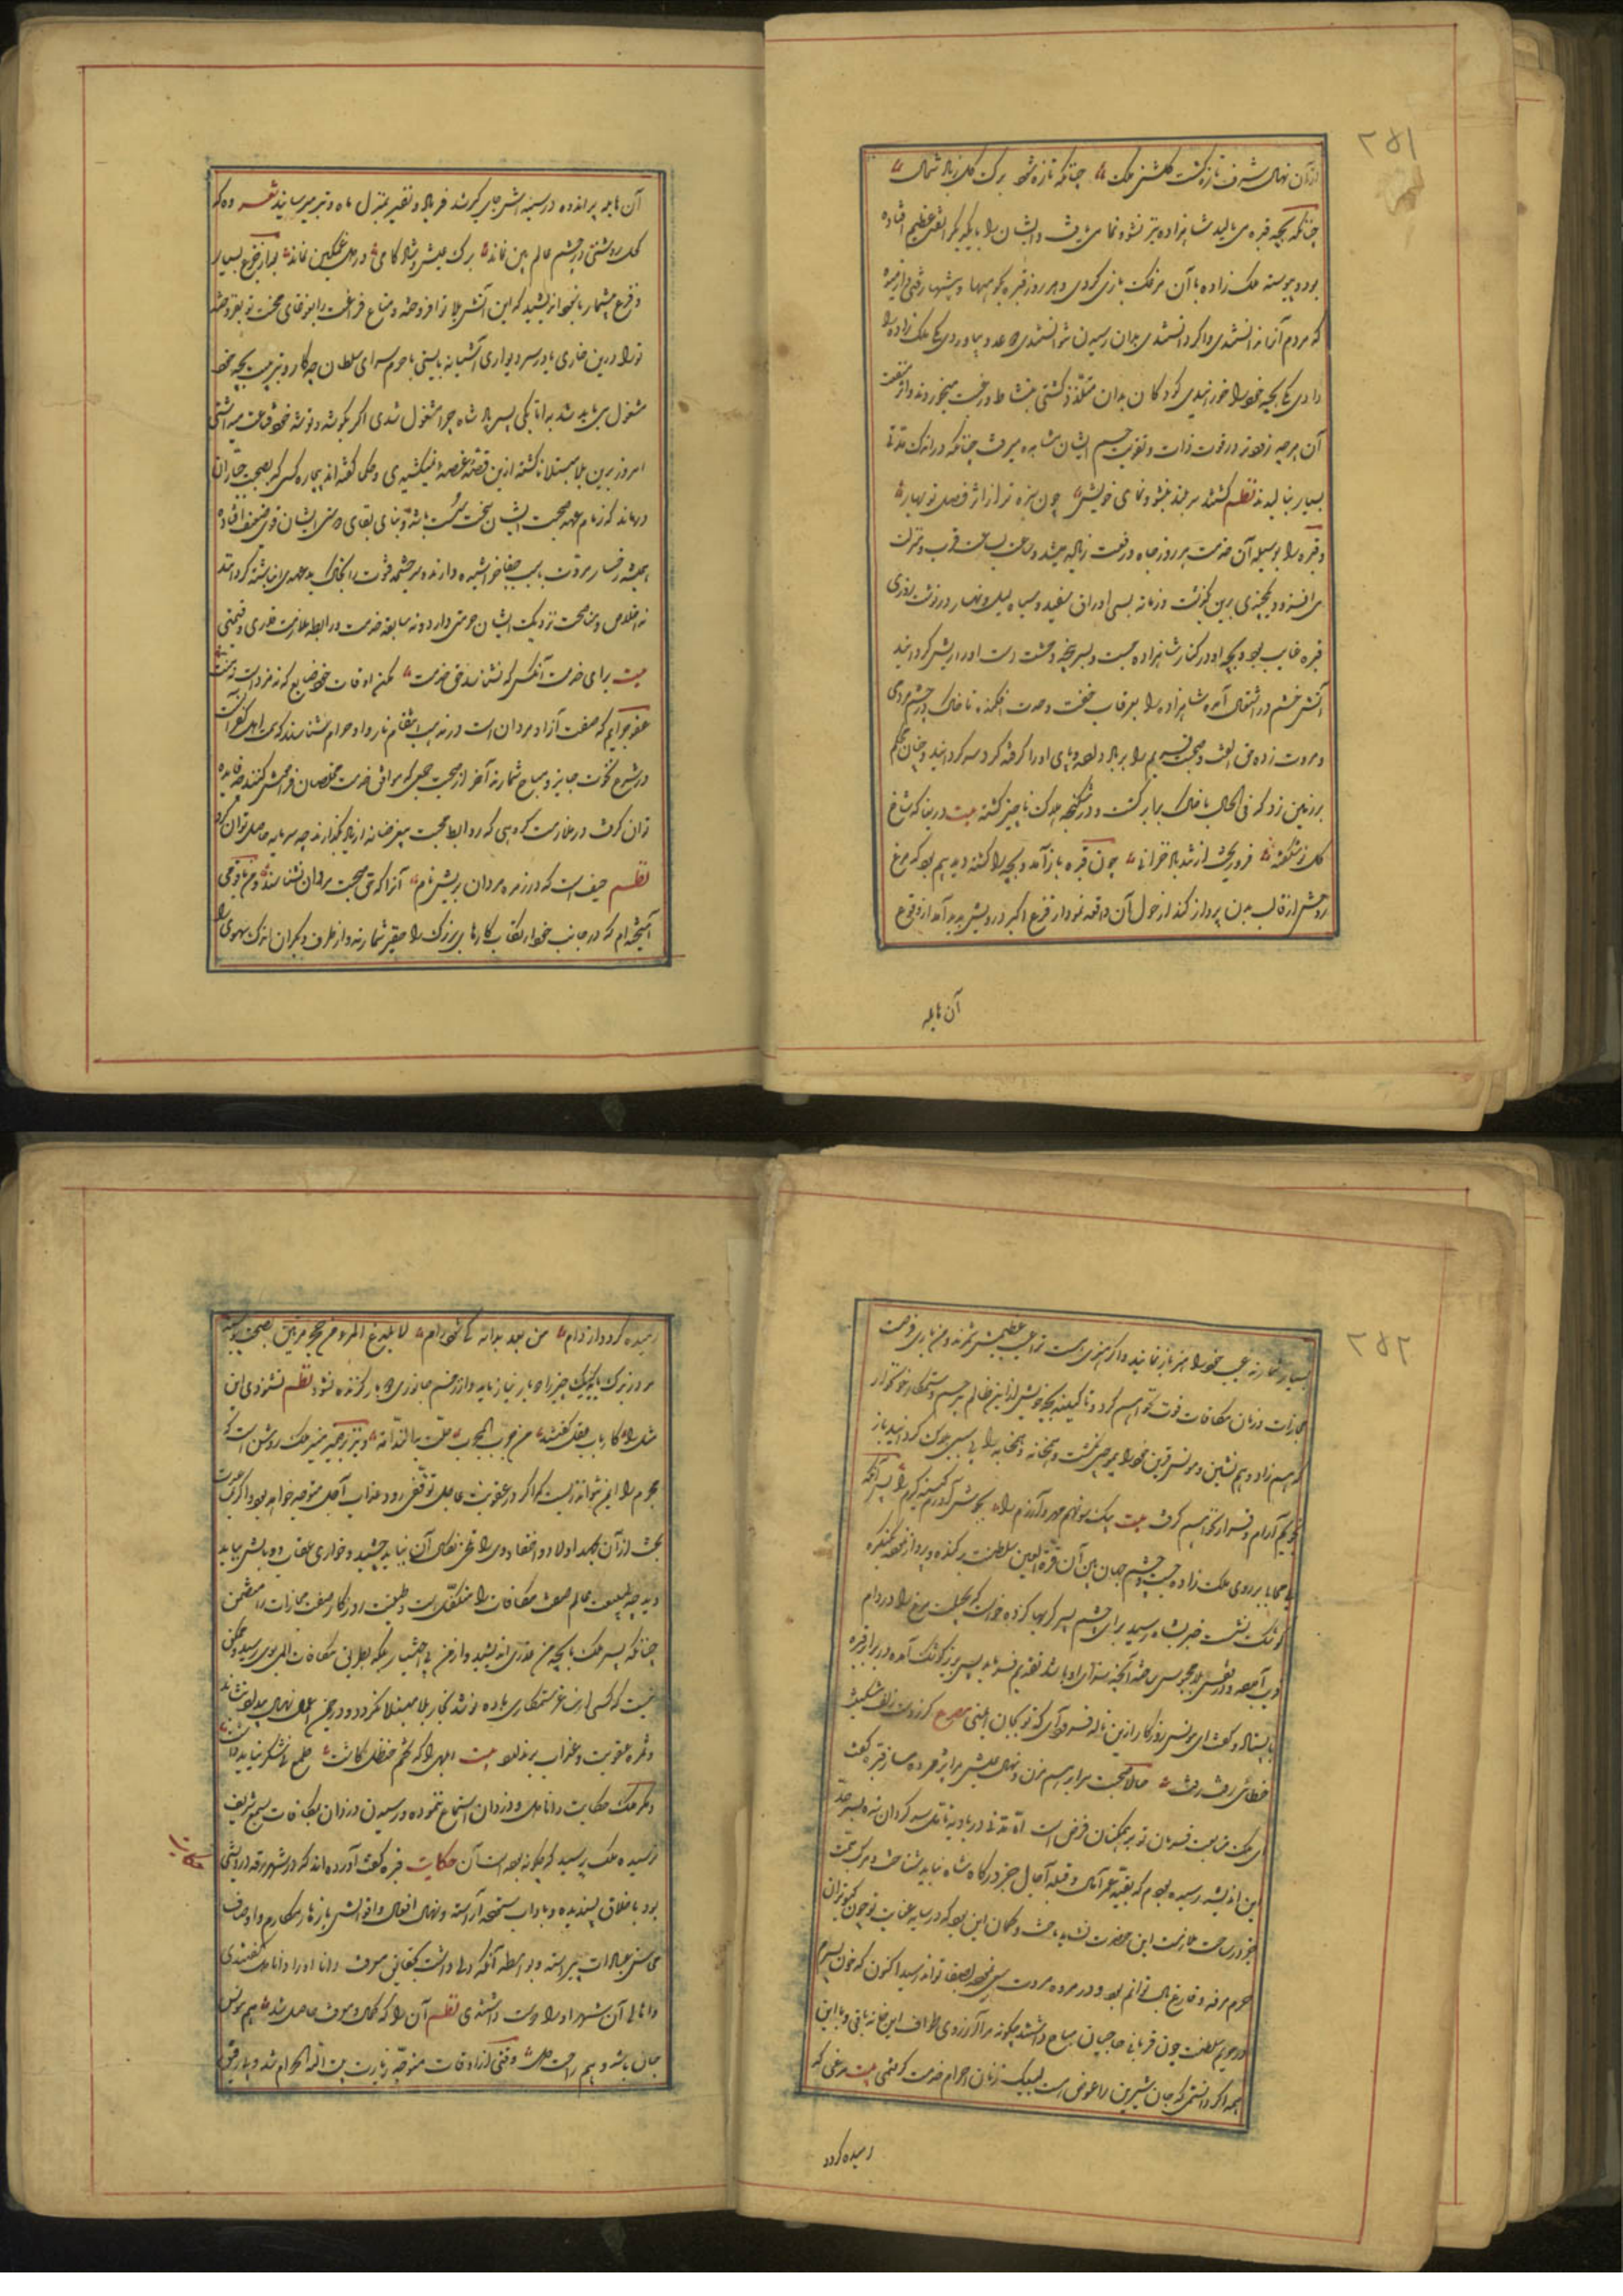 ۲۵۱
ازان نهال شرف تازه گشت گلشن ملک چنانکه تازه شود برگ گل ز باد شمال
چنانکه بچهٔ قبره می بالید شاهزاده نیز نشو و نما می یافت و ایشان را با یکدیگر الفتی عظیم افتاده
بود و پیوسته ملک زاده با آن مرغک بازی کردی و هر روز قبره بکوهها و بیشها رفتی و از میوهٔ
که مردم آنرا ندانستندی و اگر دانستندی بدان رسیدن نتوانستندی دو عدد بیاوردی یکی ملک زاده را
دادی یکی بچه خود را خورانیدی کودکان بدان متلذذ گشتی بنشاط و رغبت میخوردند و اثر منفعت
آن هرچه زودتر در قوت ذات و تقویت جسم ایشان مشاهده میرفت چنانکه در اندک مدتی
بسیار ببالیدند نظم گشتند سر بلند بنشو و نمای خویش چون سبزه تر از اثر فصل نوبهار
و قبره را بوسیله آن خدمت هر روز جاه و رفعت زیاده میشد و ساعت بساعت قرب و منزلت
می افزود و یکچندی برین گذشت و زمانه بسی اوراق سفید و سیاه لیل و نهار در نوشت روزی
قبره غایب بود و بچهٔ او در کنار شاهزاده جست و بسر پنجه وحشت دست او را ریش گردانید
آتش خشم در اشتعال آمده شاهزاده را بغرقاب خفت و حدت افکند تا خاک در چشم مردمی
و مروت زده حق الفت و صحبت قدیم را بر باد داد و پای او را گرفته گرد سر گردانید و چنان محکم
بر زمین زد که فی الحال با خاک برابر گشت و در شکنجه هلاک ناچیز گشته بیت دریغا که شاخ
گل نو شکفته فرو ریخت از تندباد خزانی چون قبره باز آمد و بچه را کشته دید بیم بود که مرغ
روحش از قالب بدن پرواز کند از هول آن واقعه نمودار فزع اکبر در دلش پدید آمد از وقوع
آن هایله
آن هایله پر انده در سینه اش جای گرفتند فریاد و نفیر بمنزل ماه و تیر میرسانید شعر ده که
کجا روشنی در چشم عالم بین نماند برگ عیش و شادکامی در دل غمگین نماند بعد از جزع بسیار
و فزع بیشمار با خود اندیشید که این آتش بلا تو افروختهٔ و متاع فراغت را بنوغای محنت تو بفروختهٔ
ترا در بن خاری یا در سر دیواری آشیانه بایستی با حرم سرای سلطان چه کار و بتربیت بچهٔ خود
مشغول می باید شد به اتابکی پسر پادشاه چرا مشغول شدی اگر بگوشه و توشه خود قناعت میداشتی
امروز برین بلا مبتلا ناگشته ازین قصه غصه نمیکشیدی و حکما گفته اند بیچاره کسی که بصحبت جباران
درماند که زمام عهد صحبت ایشان سخت سست باشد و بنای بقای وفای ایشان قوی ضعیف افتاده
همیشه رخسار مروت بسبب جفا خراشیده دارند و سرچشمه فتوت را بخاک بد عهدی انباشته گردانند
نه اخلاص و مناصحت نزدیک ایشان حرمتی دارد و نه سابقه خدمت و رابطه ملازمت قدری و قیمتی
بیت برای خدمت آنکس که نشناسد حق خدمت مکن اوقات خود ضایع که نه مزدست و نه منت
عفو جرایم که صفت آزاد مردان است در مذهب انتقام ناروا و حرام شناسند کوی اهل کفرانست
در شرع نخوت جایز و مباح شمارند آخر از صحبت جمعی که سوابق خدمت مخلصان فراموش کنند چه فایده
توان گرفت و در ملازمت گروهی که روابط محبت بیغرضانه از یاد بگذارند چه سرمایه حاصل توان کرد
نظم حیف است که در زمره مردان بریش نام آنرا که حق صحبت مردان نشناسند و من با قومی
آمیخته ام که در جانب خود ارتکاب کارهای بزرگ را حقیر شمارند و از طرف دیگران اندک سهوی را
۲۵۲
بسیار شمارند عیب خود را هنر باز نمایند و اگر هنری هست ترا عیب عظیمش شمرند و من باری فرصت
مجازات و زمان مکافات فوت نخواهم کرد و تا کینه بچه خویش را ازین ظالم بیرحم و ستمکار خونخوار
که همزاد و همنشین و مونس و قرین خود را بیموجبی بکشت و همخانه و همخوابه را بی سببی هلاک گردانید باز
نجویم آرام و قرار نخواهم گرفت بیت یک سو نهم مهر و آزرم را بجوش آورم کینه گرم را پس آنگه
بی محابا بر روی ملک زاده جست و چشم جهان بین آن قرة العین سلطنت بر کنده و پرواز نموده بکنگره
کوشک نشست خبر بشاه رسید برای چشم پسر گریها کرده خواست که بحیلت مرغ را در دام
فریب آورده در قفس بلا محبوس ساخته آنچه سزای او باشد تقدیم فرماید پس بزیر کوشک آمده در برابر قبره
بایستاد و گفت ای مونس روزگار ازین بالا فرود آی که تو بجان ایمنی مصرع گر ز دست زلف مشکینت
خطائی رفت رفت حالا صحبت مرا برهم مزن و نهال عیش مرا پژمرده مساز قبره گفت
ای ملک متابعت فرمان تو بر همگنان فرض است اما مدتی در بادیه تامل سر گردان شده بسر حد
این اندیشه رسیده بودم که بقیه عمر آمال و قبله آجال جز درگاه شاه نباید شناخت و مرکب همت
جز در ساحت ملازمت این حضرت نشاید تاخت و گمان این بود که در سایه عنایت تو چون کبوتران
حرم مرفه و فارغ البال توانم بود و در مروه مروت سعی نموده بصفا توانم رسید اکنون که خون پسرم
در حریم سلطنت چون قربانی حاجیان مباح داشتند چگونه مرا آرزوی طواف این خانه باقی و با این
همه اگر دانستمی که جان شیرین را عوض است لبیک زنان احرام خدمت گرفتمی بیت مرغی که
رمیده گردد
رمیده گردد از دام من بعد بدانه کی شود رام لا یلدغ المرء من جحر مرتین بصحت پیوسته
مرد زیرک باید که یک چیز را دو بار نیازماید و از زخم جانوری دو بار گزنده نشود نظم نشنیدی این
مثل را کارباب عقل گفتند من جرب المجرب حلت به الندامه و نیز بر ضمیر منیر ملک روشن است که
مجرم را ایمن نتواند زیست که اگر در عقوبت عاجل توقفی رود عذاب آجل متوجه خواهد بود و اگر بمدد
بخت ازان بگذرد اولاد و احفاد وی را تلخی نکال آن نباید چشید و خواری عقاب و وبالش بباید
دید چه طبیعت عالم صفت مکافات را متکفل است و طینت روزگار صفت مجازات را متضمن
چنانکه پسر ملک با بچه من غدری اندیشید و از من بی اختیار بلکه بطریق مکافات المی بوی رسید و ممکن
نیست که کسی از ساغر ستمکاری باده نوشد بخمار بلا مبتلا نگردد و در چمن اعمال نهال بیداد نشاند
و ثمره عقوبت و عذاب بر ندارد بیت اهلی را که تخم حنظل کاشت طمع نیشکر نباید داشت
و مگر ملک حکایت دانادل و دزدان استماع ننموده و رسیدن دزدان بمکافات بسمع شریف
نرسیده ملک پرسید که چگونه بوده است آن حکایت قبره گفت آورده اند که در شهر رقه درویشی
حکایت
بود باخلاق پسندیده و باداب ستوده آراسته و نهال افعال و اقوالش بازهار مکارم و اوصاف
محاسن عادات پیراسته و بواسطه آنکه دلی داشت بحقایق معرفت دانا او را دانادل گفتندی
و اهالی آن شهر او را دوست داشتندی نظم آن را که کمال معرفت حاصل شد هم مونس
جان باشد و هم راحت دل وقتی از اوقات متوجه زیارت بیت الله الحرام شد و بی رفیقی